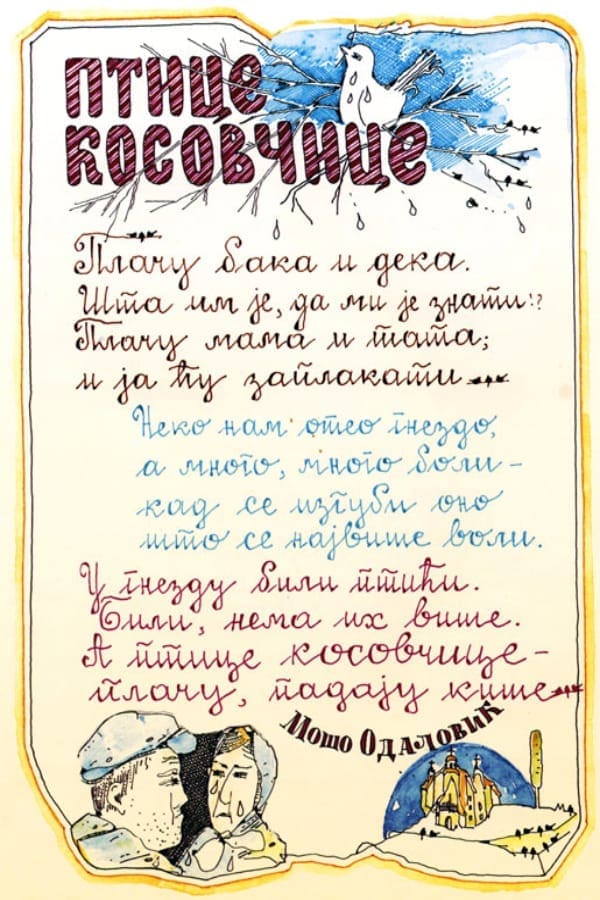 ПТИЦЕ
КОСОВЧИЦЕ
Плачу бака и дека.
Шта им је, да ми је знати!?
Плачу мама и тата;
и ја ћу заплакати
Неко нам отео гнездо,
а много, много боли –
кад се изгуби оно
што се највише воли.
У гнезду били птићи.
Били, нема их више.
А птице косовчице –
плачу, падају кише
Мошо Одаловић